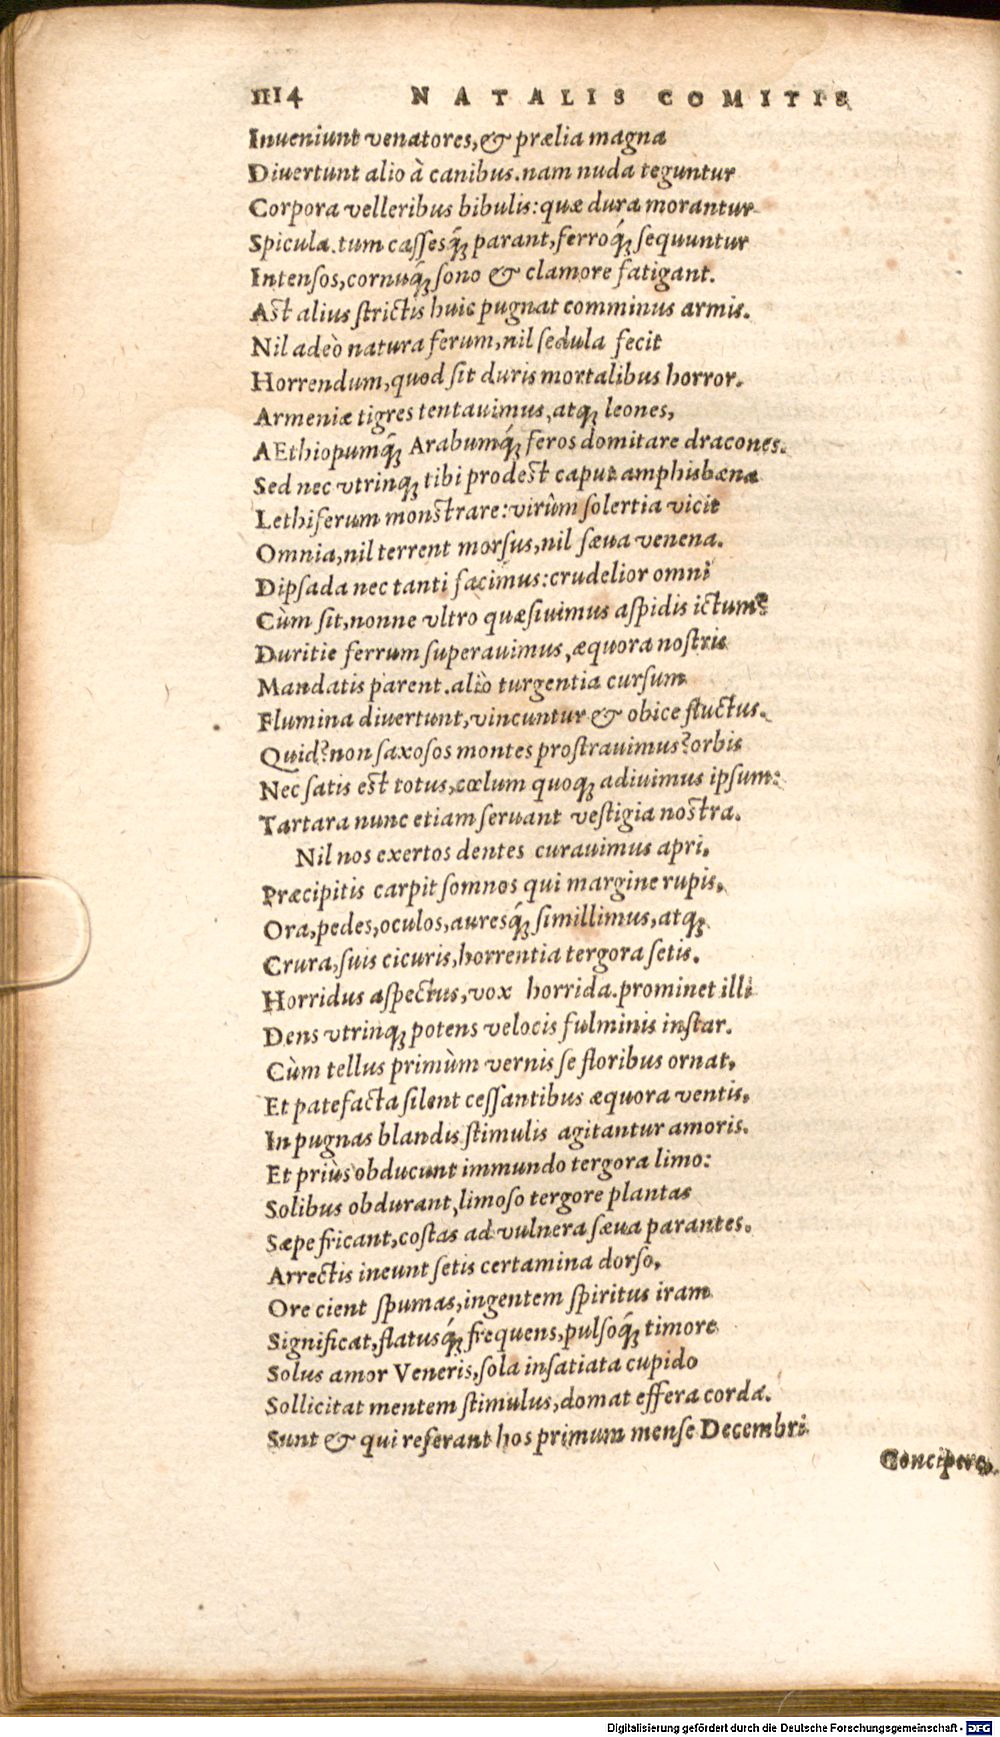 1114 NATALIS COMITIS
Inueniunt venatores, & prælia magna
Diuertunt alio à canibus. nam nuda teguntur
Corpora velleribus bibulis: quæ dura morantur
Spicula. tum cassesq́; parant, ferroq́; sequuntur
Intensos, cornuq́; sono & clamore fatigant.
Ast alius strictis huic pugnat comminus armis.
Nil adeò natura ferum, nil sedula fecit
Horrendum, quod sit duris mortalibus horror.
Armeniæ tigres tentauimus, atq; leones,
AEthiopumq́; Arabumq́; feros domitare dracones.
Sed nec vtrinq; tibi prodest caput amphisbæna
Lethiferum monstrare: virûm solertia vicit
Omnia, nil terrent morsus, nil sæua venena.
Dipsada nec tanti facimus: crudelior omni
Cùm sit, nonne vltro quæsiuimus aspidis ictum?
Duritie ferrum superauimus, æquora nostris
Mandatis parent. aliò turgentia cursum
Flumina diuertunt, vincuntur & obice fluctus.
Quid? non saxosos montes prostrauimus? orbis
Nec satis est totus, cœlum quoq; adiuimus ipsum:
Tartara nunc etiam seruant vestigia nostra.
Nil nos exertos dentes curauimus apri,
Præcipitis carpit somnos qui margine rupis,
Ora, pedes, oculos, auresq́; simillimus, atq;
Crura, suis cicuris, horrentia tergora setis.
Horridus aspectus, vox horrida. prominet illi
Dens vtrinq; potens velocis fulminis instar.
Cùm tellus primùm vernis se floribus ornat,
Et patefacta silent cessantibus æquora ventis,
In pugnas blandis stimulis agitantur amoris.
Et priùs obducunt immundo tergora limo:
Solibus obdurant, limoso tergore plantas
Sæpe fricant, costas ad vulnera sæua parantes.
Arrectis ineunt setis certamina dorso,
Ore cient spumas, ingentem spiritus iram
Significat, flatusq́; frequens, pulsoq́; timore
Solus amor Veneris, sola insatiata cupido
Sollicitat mentem stimulus, domat effera corda.
Sunt & qui referant hos primum mense Decembri
Concipere,
Digitalisierung gefördert durch die Deutsche Forschungsgemeinschaft - DFG